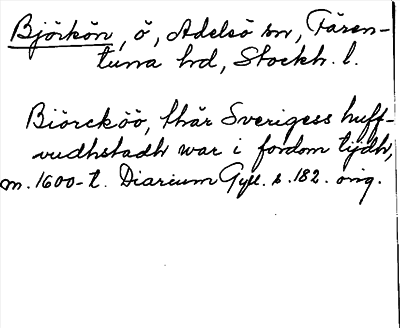 Björkön, ö, Adelsö sn, Fären-
tuna hd, Stockh. l.
Biörcköö, thär Sverigess huff-
vudhstadh war i fordom tijdh,
m. 1600-t. Diarium Gyll. s. 182. orig.